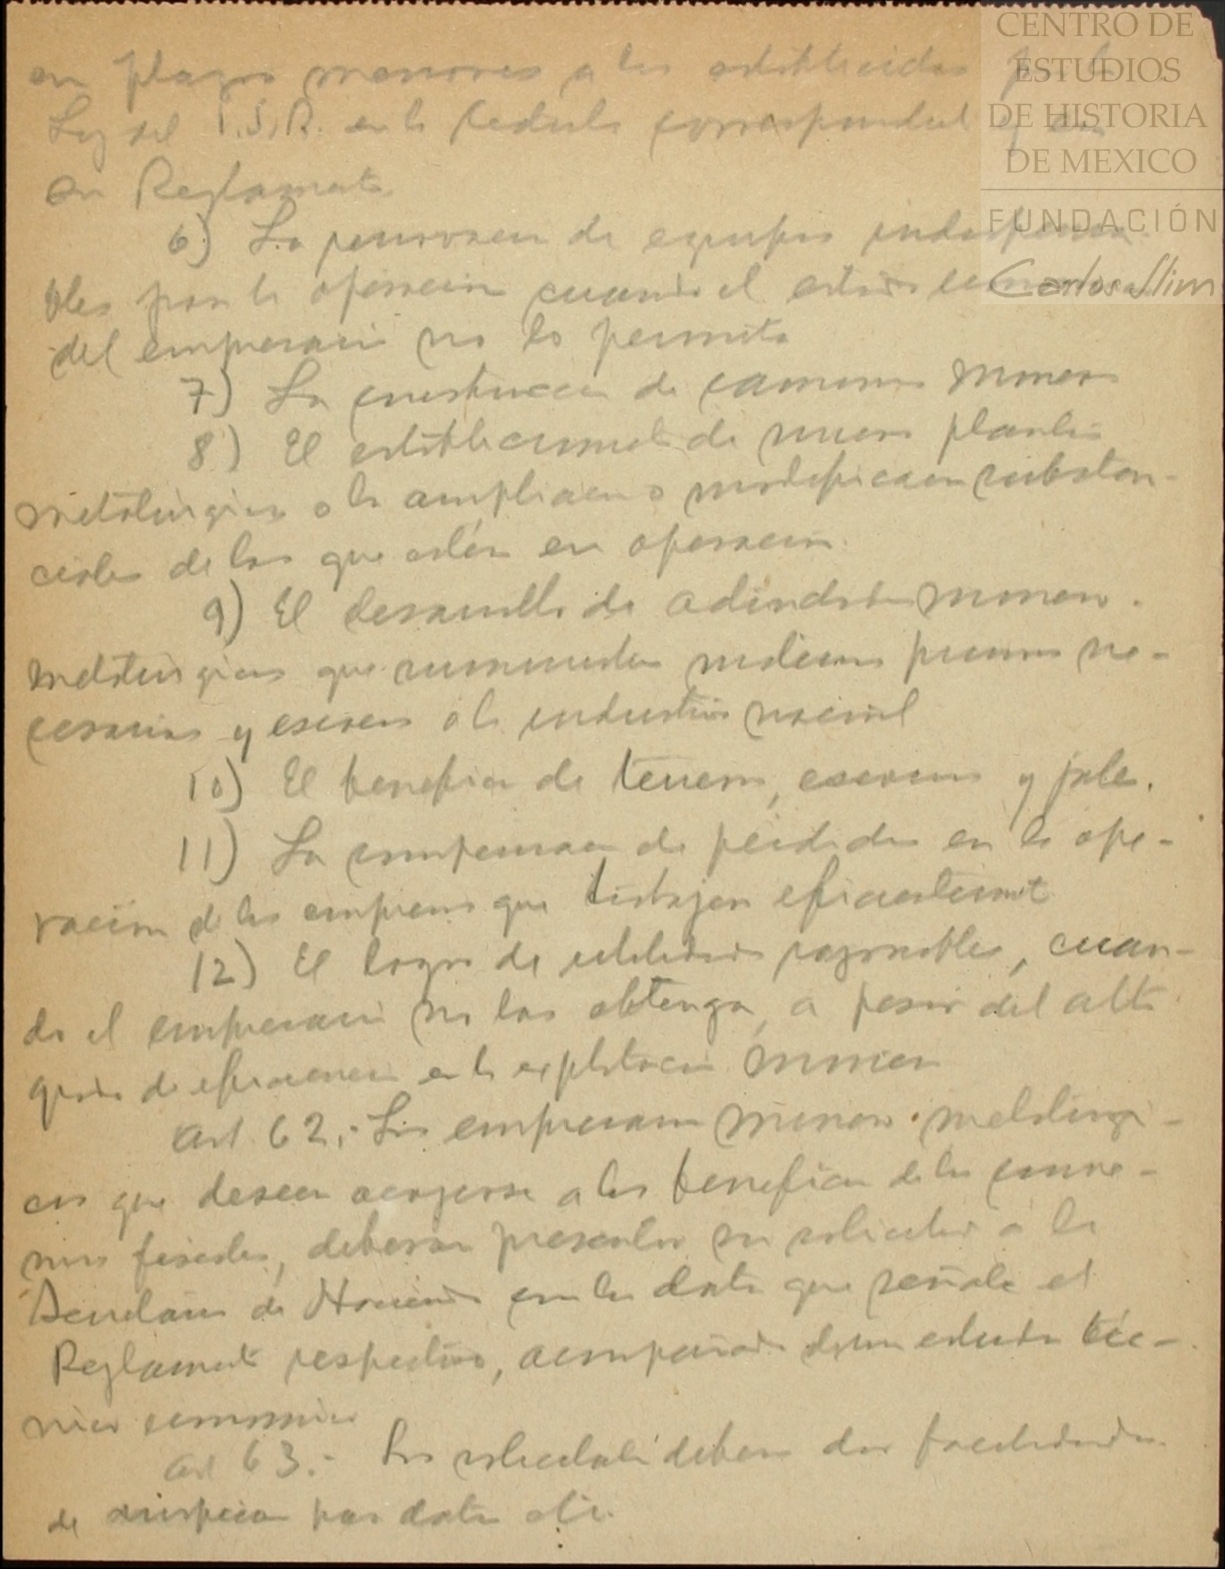 en plazos menores a los establecidos por la
Ley del I.S.R. en la Cedula correspondiente y en
su Reglamento
6) La renovacion de equipos indispensa-
bles para la operación cuando el estado economico
del empresario no lo permita
7) La construccion de caminos mineros
8) El establecimiento de nuevas plantas
metalúrgicas o la ampliacion o modificacion substan-
ciales de las que estén en operacion.
9) El desarrollo de actividades minero-
metalúrgicas que suministren materias primas ne-
cesarias y escasas a la industria nacional
10) El beneficio de terreros, escorias y jales.
11) La compensacion de pérdidas en la ope-
ración de las empresas que trabajen eficientemente
12) El logro de utilidades razonables, cuan-
do el empresario no las obtenga, a pesar del alto
grado de eficiencia en la explotacion minera
Art 62.- Las empresas minero-metalúrgi-
cas que deseen acogerse a los beneficios de los conve-
nios fiscales, deberan presentar su solicitud a la
Secretaria de Hacienda con los datos que señale el
Reglamento respectivo, acompañada de un estudio téc-
nico economico
Art 63.- Los solicitantes deberan dar facilidades
de inspeccion para datos etc.
CENTRO DE
ESTUDIOS
DE HISTORIA
DE MEXICO
FUNDACIÓN
Carlos Slim